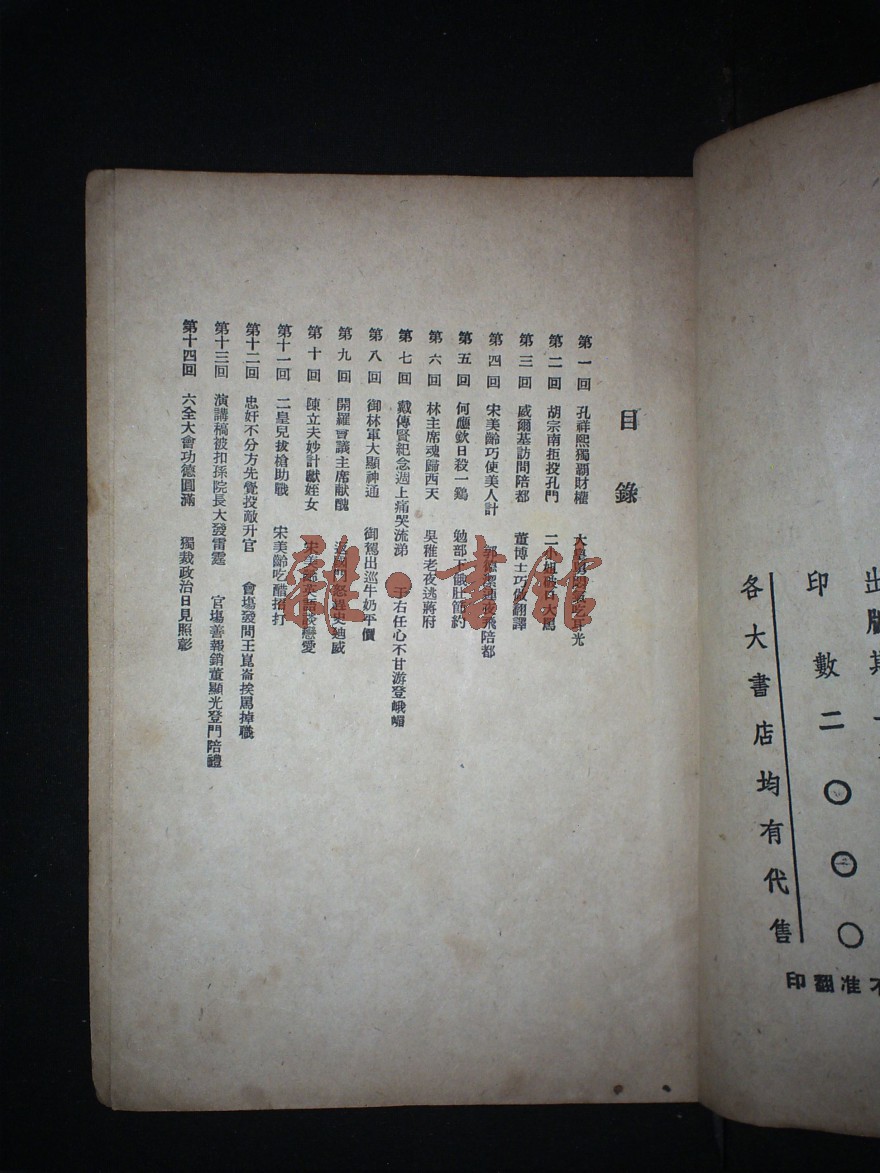 出版
印數二〇〇〇
各大書店均有代售
不准翻印
目錄
第一回 孔祥熙獨霸財權 大
第二回 胡宗南拒投孔門 二小姐 大罵
第三回 威爾基訪問陪都 董博士巧做翻譯
第四回 宋美齡巧使美人計 夜飛陪都
第五回 何應欽日殺一鷄 勉部下餓肚節約
第六回 林主席魂歸西天 吳稚老夜逃蔣府
第七回 戴傳賢紀念週上痛哭流涕 于右任心不甘游登峨嵋
第八回 御林軍大顯神通 御駕出巡牛奶平價
第九回 開羅會議主席献醜 史廸威
第十回 陳立夫妙計獻姪女 宋美齡英語談戀愛
第十一回 二皇兒拔槍助戰 宋美齡吃醋挨打
第十二回 忠奸不分方先覺投敵升官 會塲發問王崑崙挨罵掉職
第十三回 演講稿被扣孫院長大發雷霆 官塲善報銷董顯光登門陪禮
第十四回 六全大會功德圓滿 獨裁政治日見照彰
龍·書館